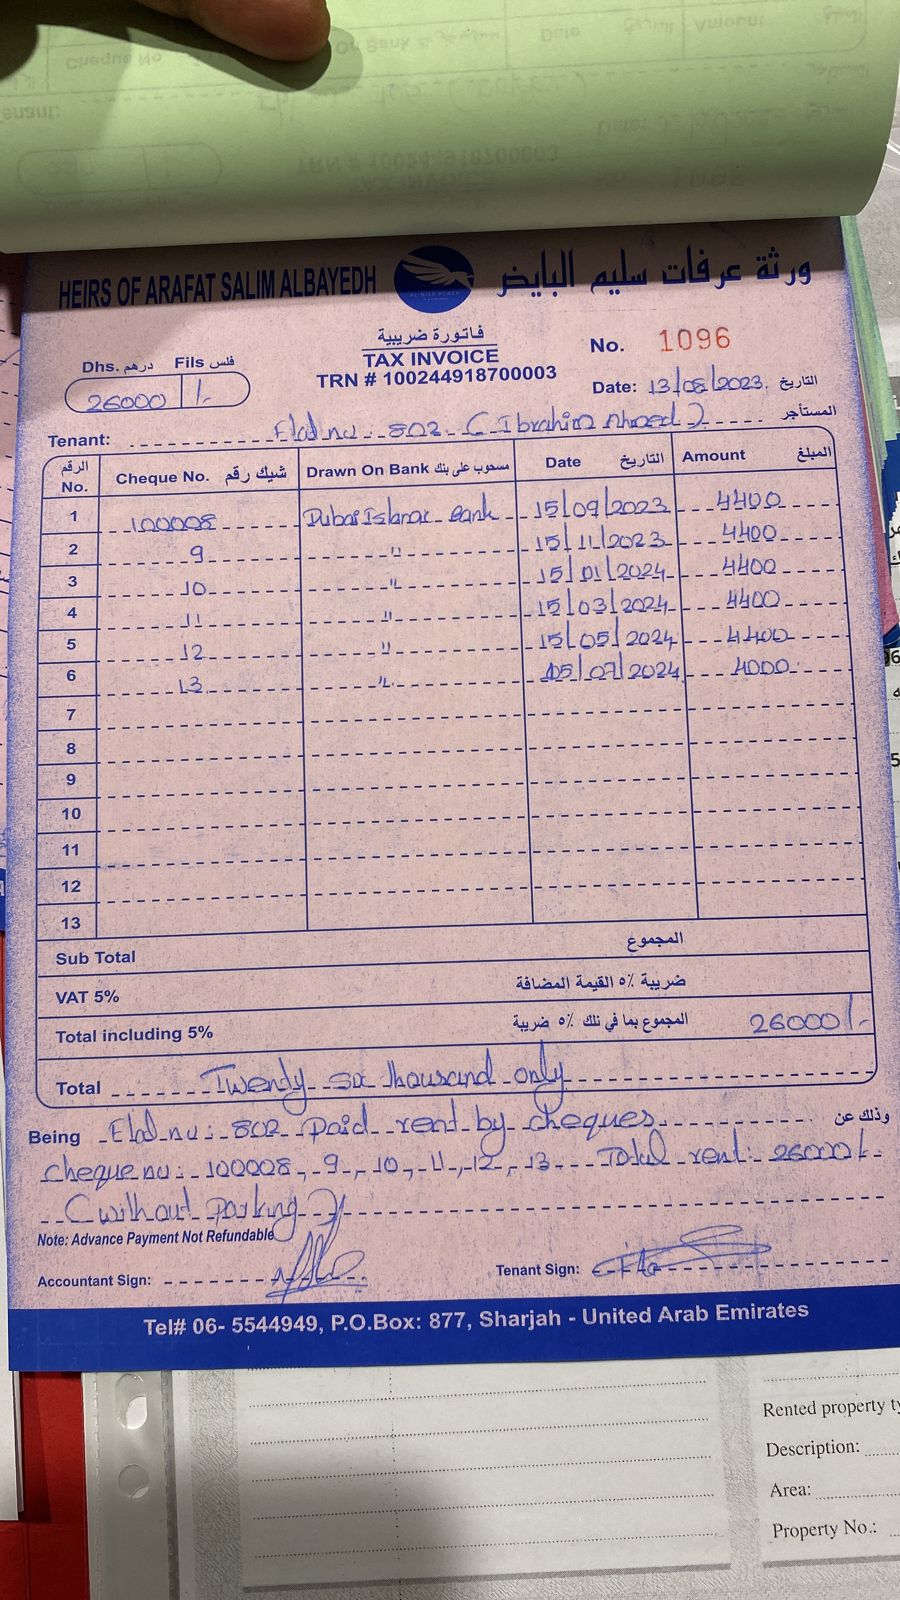 HEIRS OF ARAFAT SALIM ALBAYEDH ورثة عرفات سليم البايض
فاتورة ضريبية
TAX INVOICE
TRN # 100244918700003
No. 1096
Dhs. درهم Fils فلس
26000 /-
Date: 13/08/2023 التاريخ
Tenant: Flat no: 802 (Ibrahim Ahmed) المستأجر
الرقم No. Cheque No. شيك رقم Drawn On Bank مسحوب على بنك Date التاريخ Amount المبلغ
1 100008 Dubai Islamic Bank 15/09/2023 4400
2 9 " 15/11/2023 4400
3 10 " 15/01/2024 4400
4 11 " 15/03/2024 4400
5 12 " 15/05/2024 4400
6 13 " 05/07/2024 4000
7
8
9
10
11
12
13
Sub Total المجموع
VAT 5% ضريبة ٥٪ القيمة المضافة
Total including 5% المجموع بما في ذلك ٥٪ ضريبة 26000/-
Total Twenty six thousand only
Being Flat no: 802 Paid rent by cheques وذلك عن
cheque no: 100008, 9, 10, 11, 12, 13 Total rent: 26000/-
(without parking)
Note: Advance Payment Not Refundable
Accountant Sign: Tenant Sign:
Tel# 06- 5544949, P.O.Box: 877, Sharjah - United Arab Emirates
Rented property ty
Description:
Area:
Property No.: